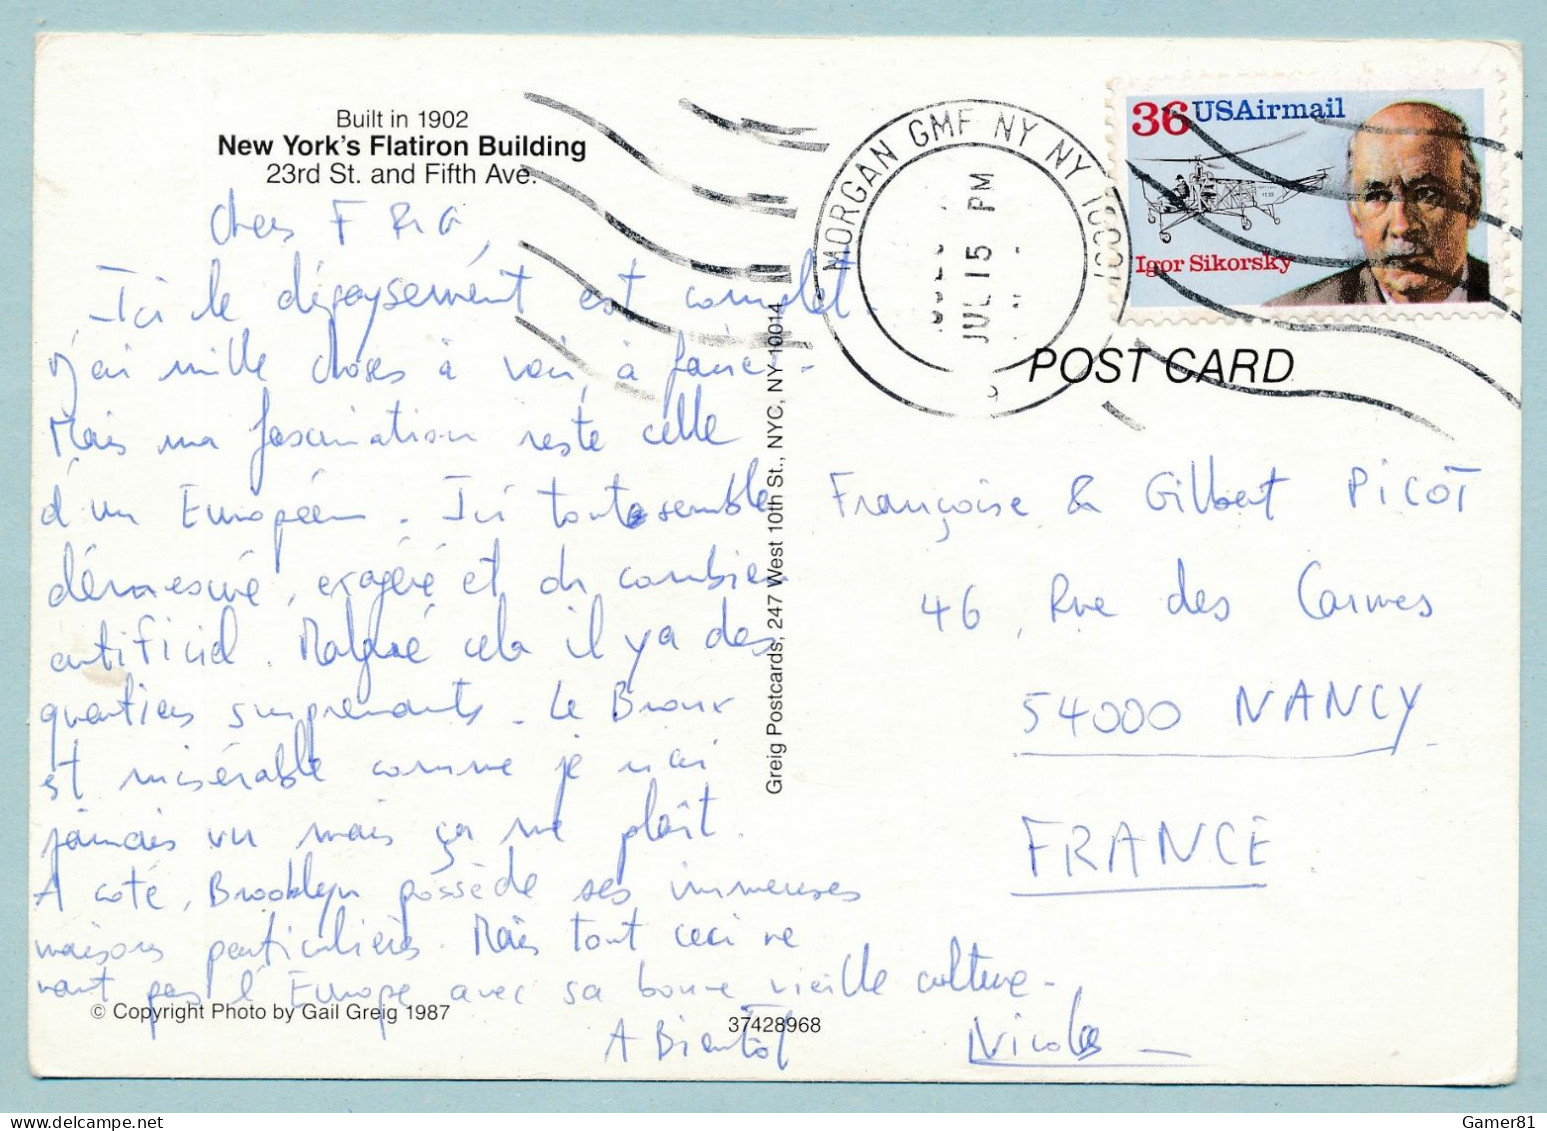 Built in 1902
New York's Flatiron Building
23rd St. and Fifth Ave.
Chers F R G,
Ici le dépaysement est complet.
J'ai mille choses à voir, à faire.
Mais ma fascination reste celle
d'un Européen. Ici tout semble
démesuré, exagéré et oh combien
artificiel. Malgré cela il y a des
quartiers surprenants. Le Bronx
est misérable comme je n'ai
jamais vu mais ça me plaît.
A coté, Brooklyn possède ses immenses
maisons particulières. Mais tout ceci ne
vaut pas l'Europe avec sa bonne vieille culture.
A Bientôt Nicolas
© Copyright Photo by Gail Greig 1987
37428968
Greig Postcards, 247 West 10th St., NYC, NY 10014
MORGAN GMF NY NY 10001
JUL 15
PM
36 USAirmail
Igor Sikorsky
POST CARD
Françoise & Gilbert PICOT
46, Rue des Carmes
54000 NANCY
FRANCE
Gamer81